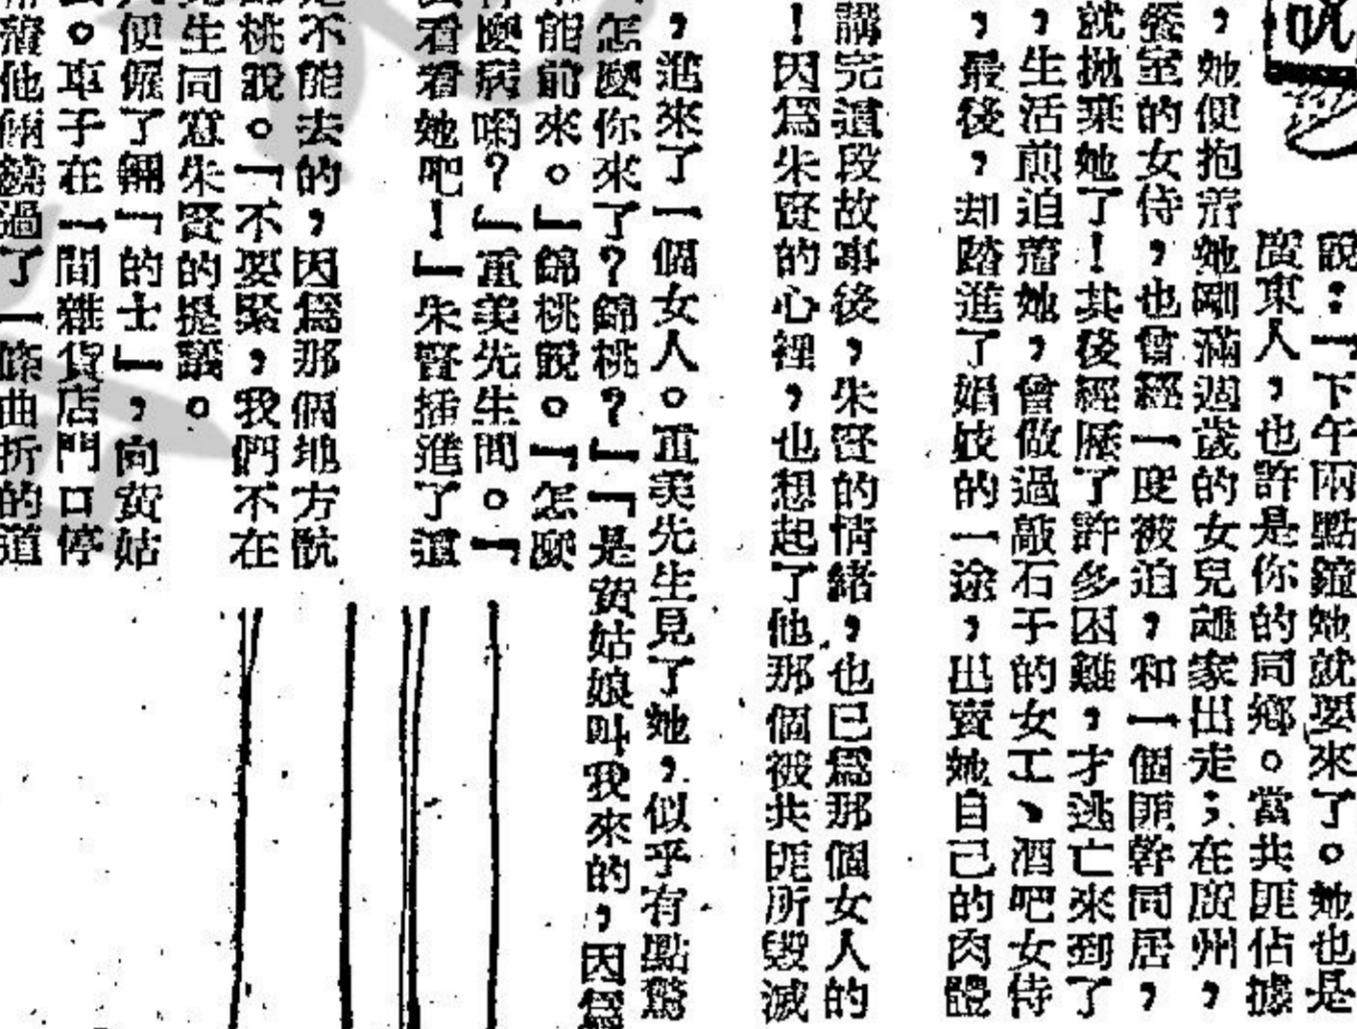 說：「下午兩點鐘她就要來了。她也是
廣東人，也許是你的同鄉。當共匪佔據
，她便抱着她剛滿週歲的女兒離家出走；在廣州，
餐室的女侍，也曾經一度被迫，和一個匪幹同居，
就拋棄她了！其後經歷了許多困難，才逃亡來到了
，生活煎迫着她，曾做過敲石子的女工、酒吧女侍
，最後，却踏進了娼妓的一途，出賣她自己的肉體
講完這段故事後，朱賢的情緒，也已爲那個女人的
！因爲朱賢的心裡，也想起了他那個被共匪所毀滅
，進來了一個女人。重美先生見了她，似乎有點驚
怎麼你來了？錦桃？」「是黃姑娘叫我來的，因爲
能前來。」錦桃說。「怎麼
麼病喲？」重美先生問。「
去看看她吧！」朱賢插進了這
不能去的，因爲那個地方骯
桃說。「不要緊，我們不在
生同意朱賢的提議。
便僱了輛「的士」，向黃姑
。車子在一間雜貨店門口停
着他倆繞過了一條曲折的道